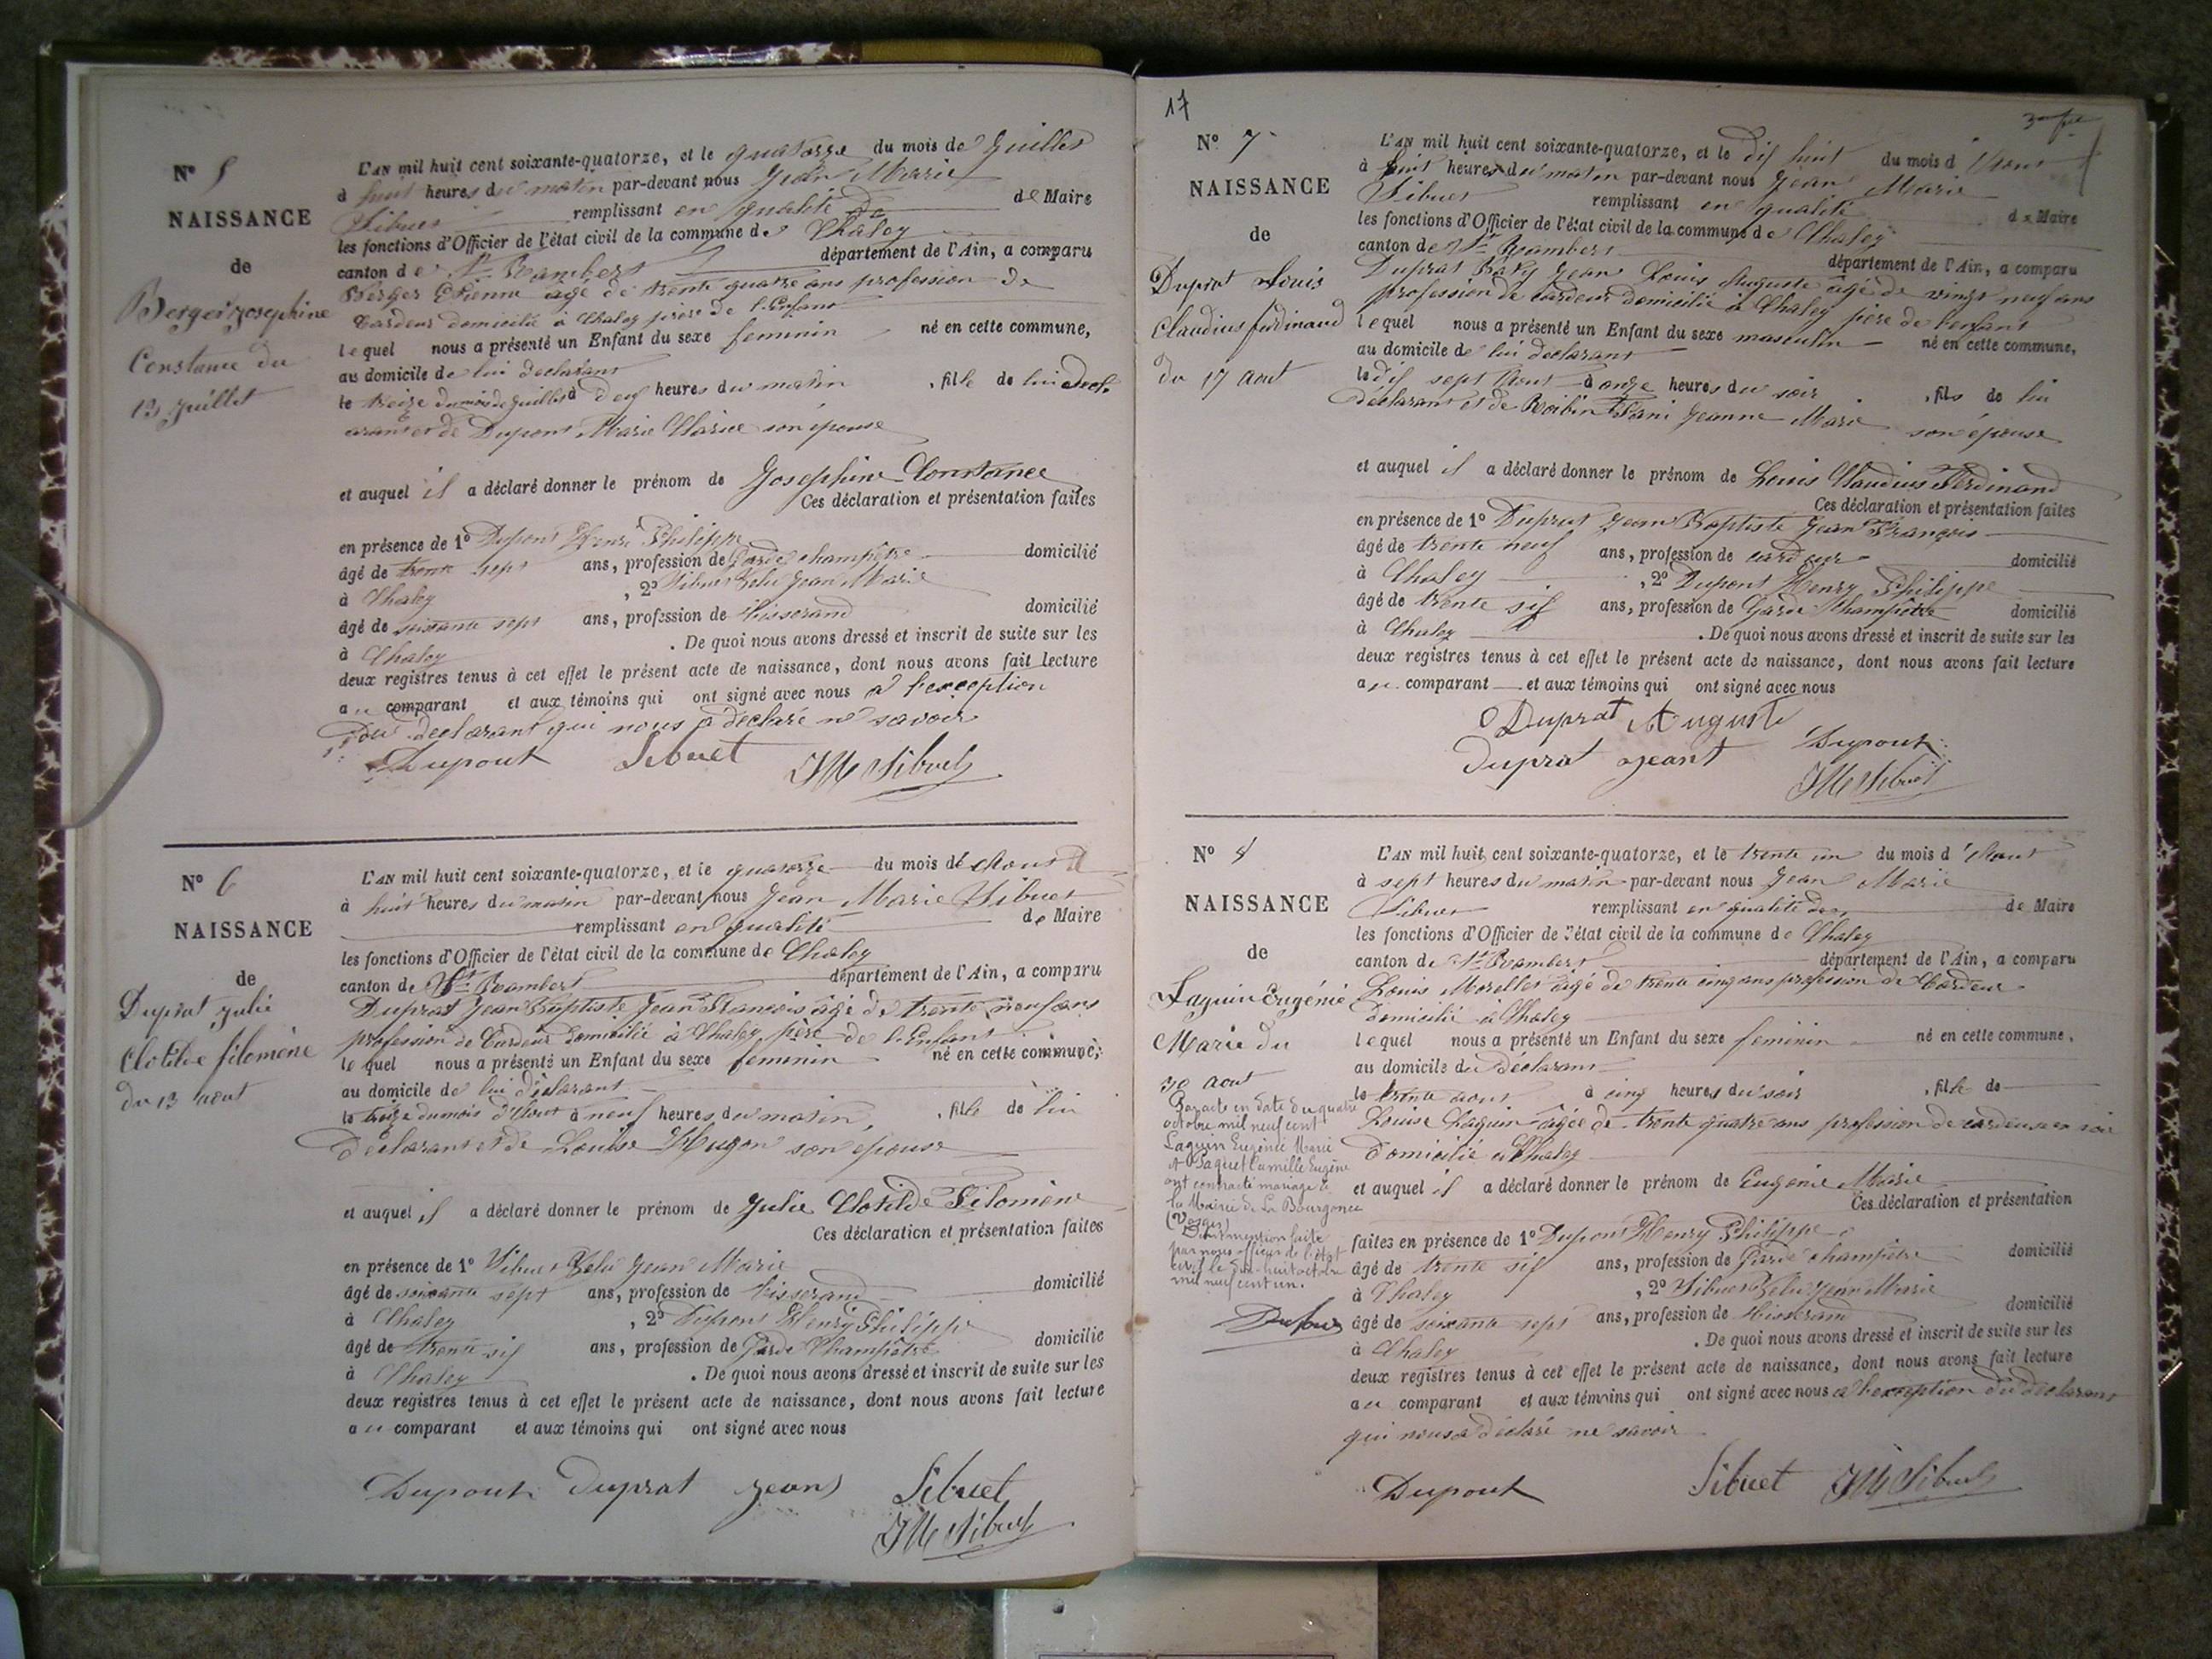 N° 5
NAISSANCE
de
Berger Josephine
Constance du
13 juillet
L'AN mil huit cent soixante-quatorze, et le quatorze du mois de Juillet
à huit heures du matin par-devant nous Jean Marie
Sibuet remplissant en qualité de de Maire
les fonctions d'Officier de l'état civil de la commune de Chaley
canton de St Rambert département de l'Ain, a comparu
Berger Etienne agé de trente quatre ans profession de
Cardeur domicilié à Chaley père de l'Enfant
lequel nous a présenté un Enfant du sexe feminin né en cette commune,
au domicile de lui déclarant
le treize du mois de Juillet à deux heures du matin , fille de lui décl-
arant et de Dupont Marie Clarice son épouse
et auquel il a déclaré donner le prénom de Josephine Constance
Ces déclaration et présentation faites
en présence de 1° Dupont Henri Philippe
âgé de trente sept ans, profession de Garde champêtre domicilié
à Chaley , 2° Sibuet Jean Marie
âgé de soixante sept ans, profession de Tisserand domicilié
à Chaley . De quoi nous avons dressé et inscrit de suite sur les
deux registres tenus à cet effet le présent acte de naissance, dont nous avons fait lecture
au comparant et aux témoins qui ont signé avec nous à l'exception
du déclarant qui nous a déclaré ne savoir
Dupont Sibuet JM Sibuet
N° 6
NAISSANCE
de
Duprat Julie
Clotilde filomène
du 13 aout
L'AN mil huit cent soixante-quatorze, et le quatorze du mois d'Aout
à huit heures du matin par-devant nous Jean Marie Sibuet
remplissant en qualité de Maire
les fonctions d'Officier de l'état civil de la commune de Chaley
canton de St Rambert département de l'Ain, a comparu
Duprat Jean Baptiste Jean François agé de trente neuf ans
profession de Cardeur domicilié à Chaley père de l'Enfant
lequel nous a présenté un Enfant du sexe feminin né en cette commune,
au domicile de lui déclarant
le treize du mois d'Aout à neuf heures du matin, , fille de lui
déclarant et de Louise Hugon son epouse
et auquel il a déclaré donner le prénom de Julie Clotilde Filomène
Ces déclaration et présentation faites
en présence de 1° Sibuet Jean Marie
âgé de soixante sept ans, profession de tisserand domicilié
à Chaley , 2° Dupont Henry Philippe
âgé de trente six ans, profession de Garde Champêtre domicilié
à Chaley . De quoi nous avons dressé et inscrit de suite sur les
deux registres tenus à cet effet le présent acte de naissance, dont nous avons fait lecture
au comparant et aux témoins qui ont signé avec nous
Dupont Duprat jean Sibuet
JM Sibuet
17
N° 7
NAISSANCE
de
Duprat Louis
Claudius ferdinand
du 17 Aout
L'AN mil huit cent soixante-quatorze, et le dix huit du mois d'Aout
à huit heures du matin par-devant nous Jean Marie
Sibuet remplissant en qualité de Maire
les fonctions d'Officier de l'état civil de la commune de Chaley
canton de St Rambert département de l'Ain, a comparu
Duprat Jean Louis Auguste agé de vingt neuf ans
profession de Cardeur domicilié à Chaley père de l'enfant
lequel nous a présenté un Enfant du sexe masculin né en cette commune,
au domicile de lui déclarant
le dix sept Aout à onze heures du soir , fils de lui
déclarant et de Jeanne Marie son épouse
et auquel il a déclaré donner le prénom de Louis Claudius Ferdinand
Ces déclaration et présentation faites
en présence de 1° Duprat Jean Baptiste Jean François
âgé de trente neuf ans, profession de cardeur domicilié
à Chaley , 2° Dupont Henry Philippe
âgé de trente six ans, profession de Garde Champêtre domicilié
à Chaley . De quoi nous avons dressé et inscrit de suite sur les
deux registres tenus à cet effet le présent acte de naissance, dont nous avons fait lecture
au comparant et aux témoins qui ont signé avec nous
Duprat Auguste
Duprat jeant Dupont
JM Sibuet
N° 8
NAISSANCE
de
Laguin Eugénie
Marie du
30 Aout
Par acte en date du quatre
octobre mil neuf cent
Laguin Eugénie Marie
et Camille Eugène
ont contracté mariage à
la Mairie de La Bourgonce
(Vosges)
mention faite
par nous officier de l'état
civil le dix-huit octobre
mil neuf cent un.
L'AN mil huit cent soixante-quatorze, et le trente un du mois d'Aout
à sept heures du matin par-devant nous Jean Marie
Sibuet remplissant en qualité de de Maire
les fonctions d'Officier de l'état civil de la commune de Chaley
canton de St Rambert département de l'Ain, a comparu
Louis Morellet agé de trente cinq ans profession de Cardeur
domicilié à Chaley
lequel nous a présenté un Enfant du sexe feminin né en cette commune,
au domicile du déclarant
le trente aout à cinq heures du soir , fille de
Louise Laguin agée de trente quatre ans profession de cardeuse en soie
domicilié à Chaley
et auquel il a déclaré donner le prénom de Eugenie Marie
Ces déclaration et présentation
faites en présence de 1° Dupont Henry Philippe
âgé de trente six ans, profession de Garde champêtre domicilié
à Chaley , 2° Sibuet Jean Marie
âgé de soixante sept ans, profession de tisserand domicilié
à Chaley . De quoi nous avons dressé et inscrit de suite sur les
deux registres tenus à cet effet le présent acte de naissance, dont nous avons fait lecture
au comparant et aux témoins qui ont signé avec nous à l'exception du déclarant
qui nous a déclaré ne savoir
Dupont Sibuet JM Sibuet